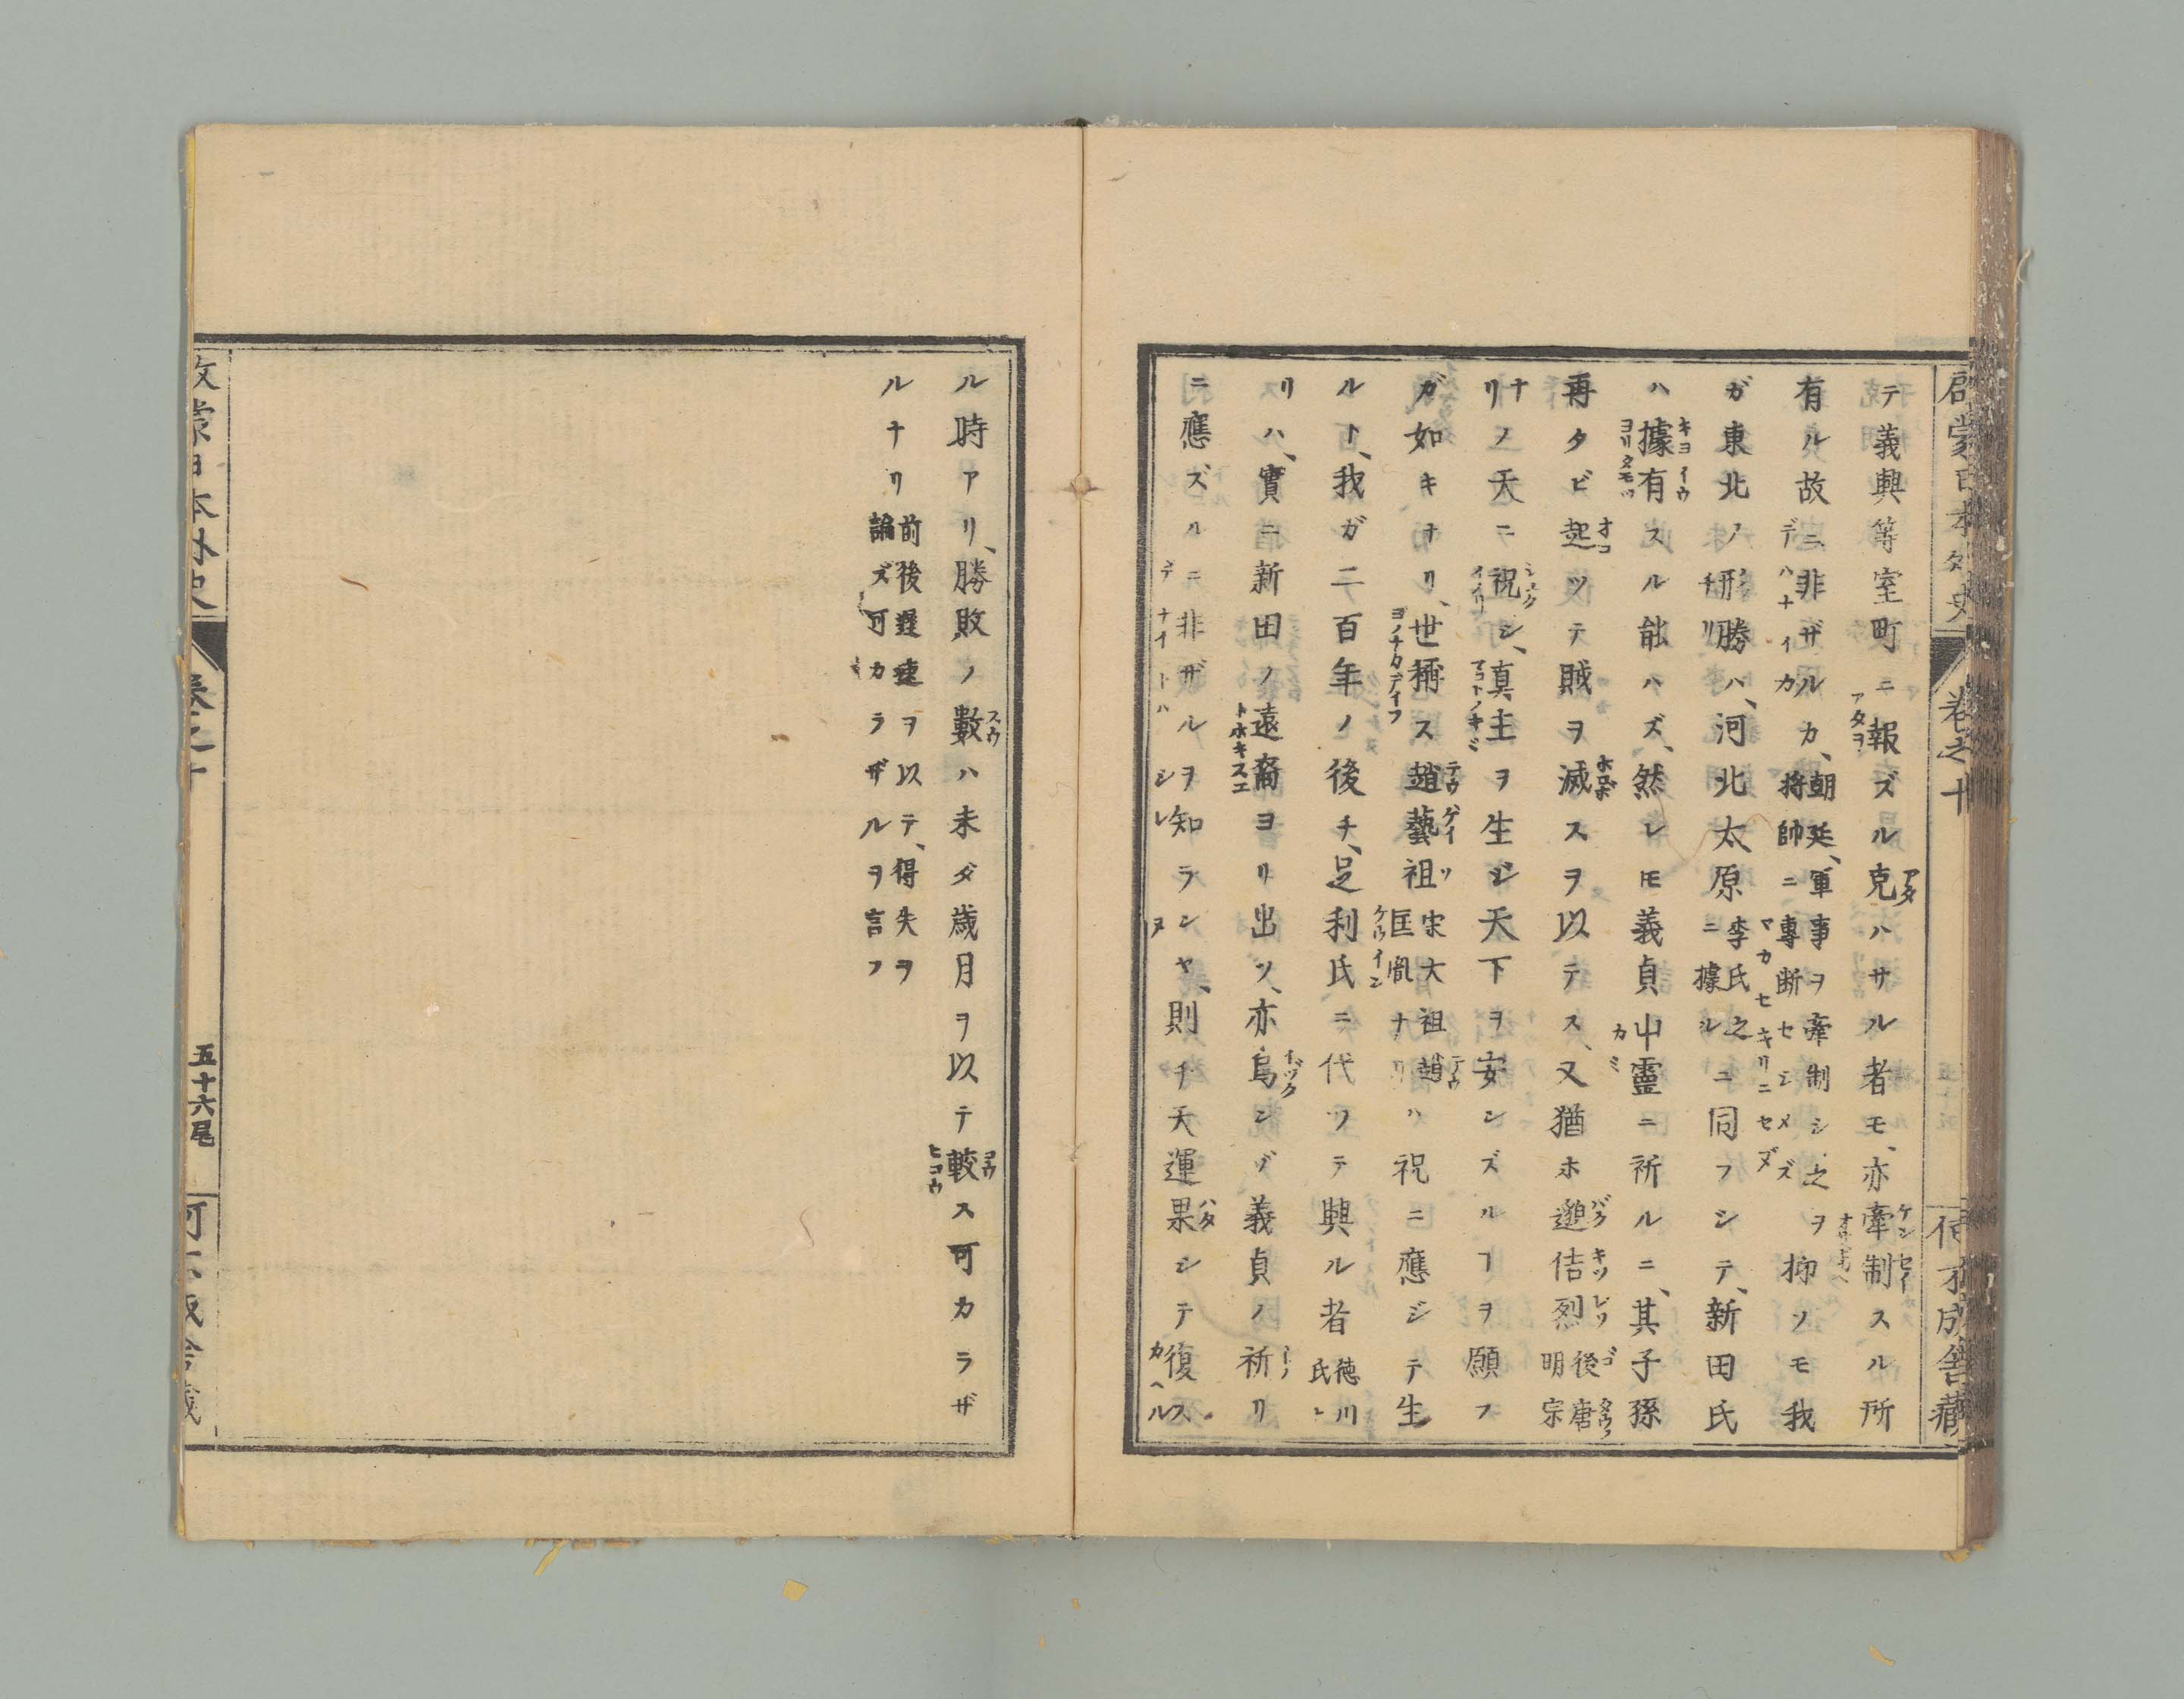 啓蒙日本外史 卷之十
テ義興等室町ニ報ズル克ハサル者モ、亦牽制スル所
有ル故ニ非ザルカ、朝廷、軍事ヲ牽制シ之ヲ
將帥ニ專斷セシメズ
抑ソモ我
ガ東北ノ形勝ハ、河北太原李氏之
ニ據ル
ニ同フシテ、新田氏
ハ據有スル能ハズ、然レ𪜈義貞山靈ニ祈ルニ、其子孫
再タビ起ツテ賊ヲ滅スヲ以テス、又猶ホ邈佶烈後唐
明宗
ナリ
ノ天ニ祝シ、真主ヲ生ジ天下ヲ安ンズルヿヲ願フ
ガ如キナリ、世稱ス趙藝祖宋大祖趙
匡胤ナリ
ハ祝ニ應ジテ生
ルト、我ガ二百年ノ後チ、足利氏ニ代ツテ興ル者德川
氏
リハ、實ニ新田ノ遠裔ヨリ出ツ、亦烏ンゾ義貞ノ祈リ
ニ應ズルニ非ザルヲ知ランヤ、則チ天運果シテ復ス
ル時アリ、勝敗ノ數ハ未ダ歳月ヲ以テ較ス可カラザ
ルナリ前後遲速ヲ以テ、得失ヲ
論ズ可カラザルヲ言フ
卷之十
五十六尾